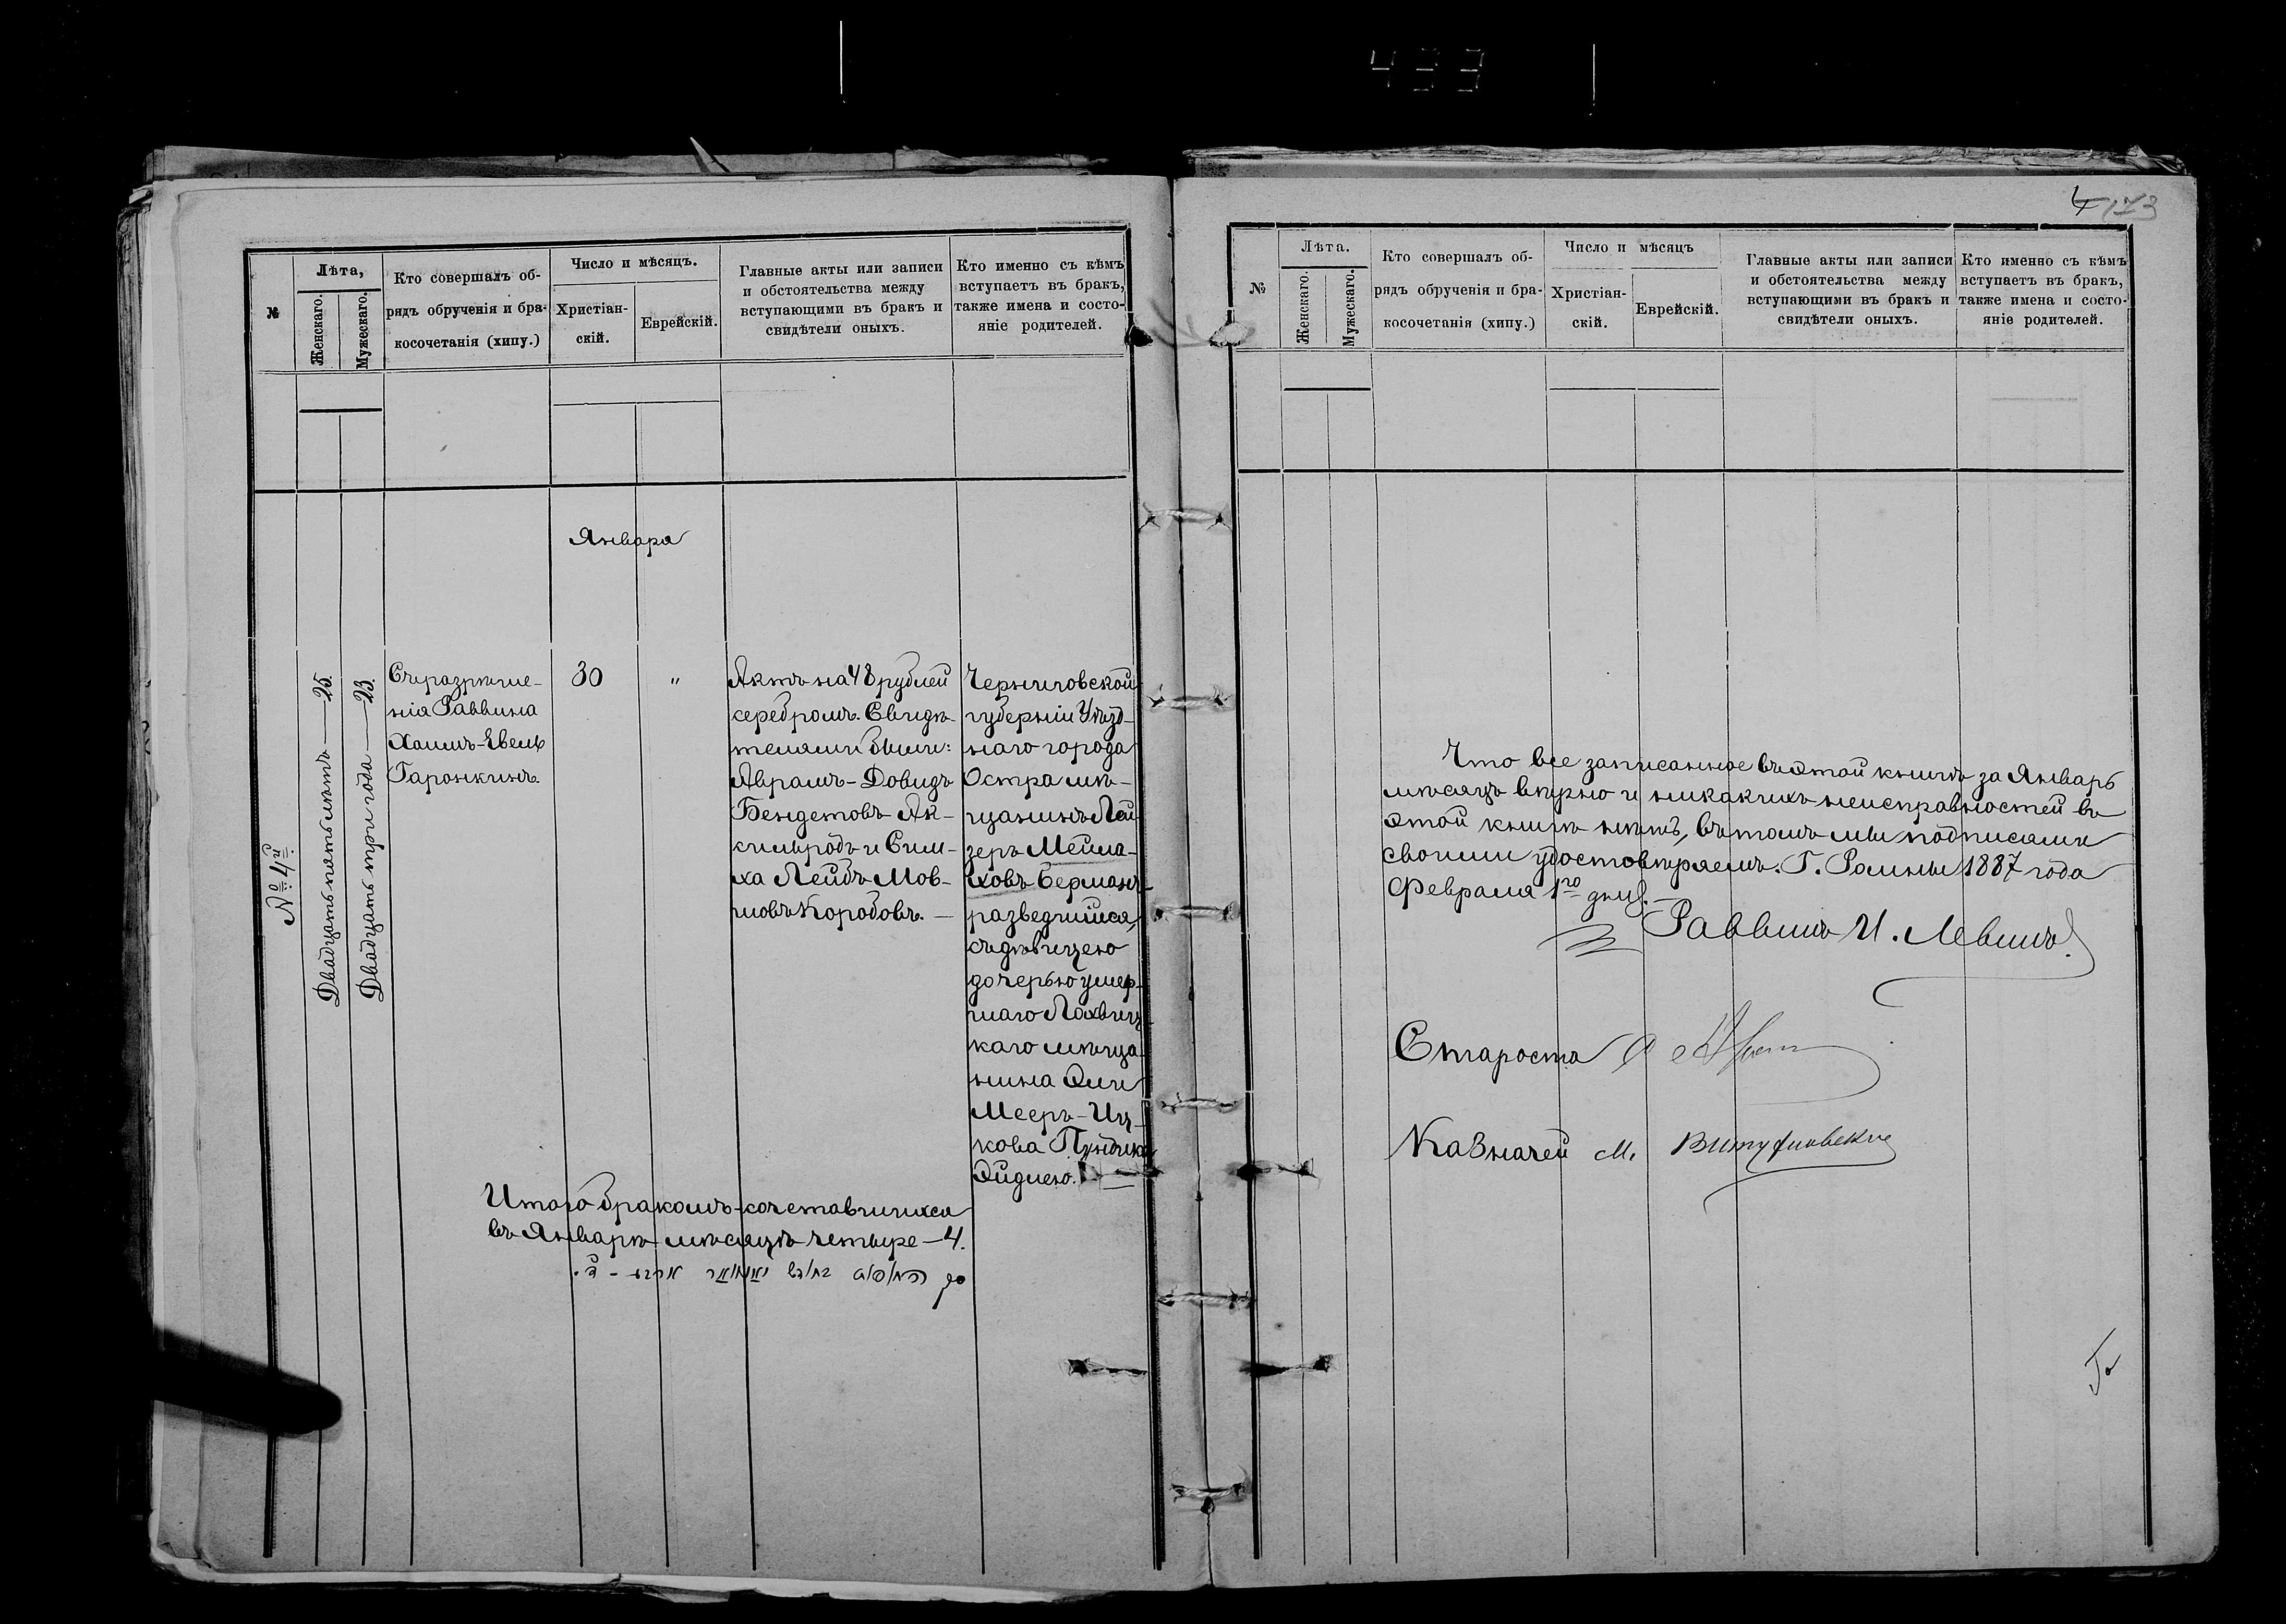 433
№
Лѣта,
Женскаго.
Мужескаго.
Кто совершалъ об-
рядъ обрученія и бра-
косочетанія (хипу.)
Число и мѣсяцъ.
Христіан-
скій.
Еврейскій.
Главные акты или записи
и обстоятельства между
вступающими въ бракъ и
свидѣтели оныхъ.
Кто именно съ кѣмъ
вступаетъ въ бракъ,
также имена и состо-
яніе родителей.
Января
№ 4й
Двадцать пять лѣтъ — 25.
Двадцать три года — 23.
Съ разрѣше-
нія Раввина
Хаимъ-Евель
Гаронкинъ.
30
"
Актъ на 48 рублей
серебромъ. Свидѣ-
телями были:
Аврамъ-Довидъ
Бендетовъ Ак-
сильродъ и Сим-
ха Лейбъ Мов-
шовъ Коробовъ. —
Черниговской
губерніи Уѣзд-
наго города
Остра мѣ-
щанинъ Лей
зеръ Мейла-
ховъ Берманъ
разведшійся,
съ дѣвицею
дочерью умер-
шаго Лохвиц
каго мѣща
нина Эли
Мееръ-Иц-
кова Пундик
Эйдлею.
Итого бракомъ-сочетавшихся
въ Январѣ мѣсяцѣ четыре — 4.
4 173
№
Лѣта.
Женскаго.
Мужескаго.
Кто совершалъ об-
рядъ обрученія и бра-
косочетанія (хипу.)
Число и мѣсяцъ
Христіан-
скій.
Еврейскій.
Главные акты или записи
и обстоятельства между
вступающими въ бракъ и
свидѣтели оныхъ.
Кто именно съ кѣмъ
вступаетъ въ бракъ,
также имена и состо-
яніе родителей.
Что все записанное въ этой книгѣ за Январь
мѣсяцъ вѣрно и никакихъ неисправностей въ
этой книгѣ нѣтъ, въ томъ мы подписами
своими удостовѣряемъ. Г. Ромны 1887 года
Февраля 1го дня.
Раввинъ И. Левинъ
Староста
Казначей М.